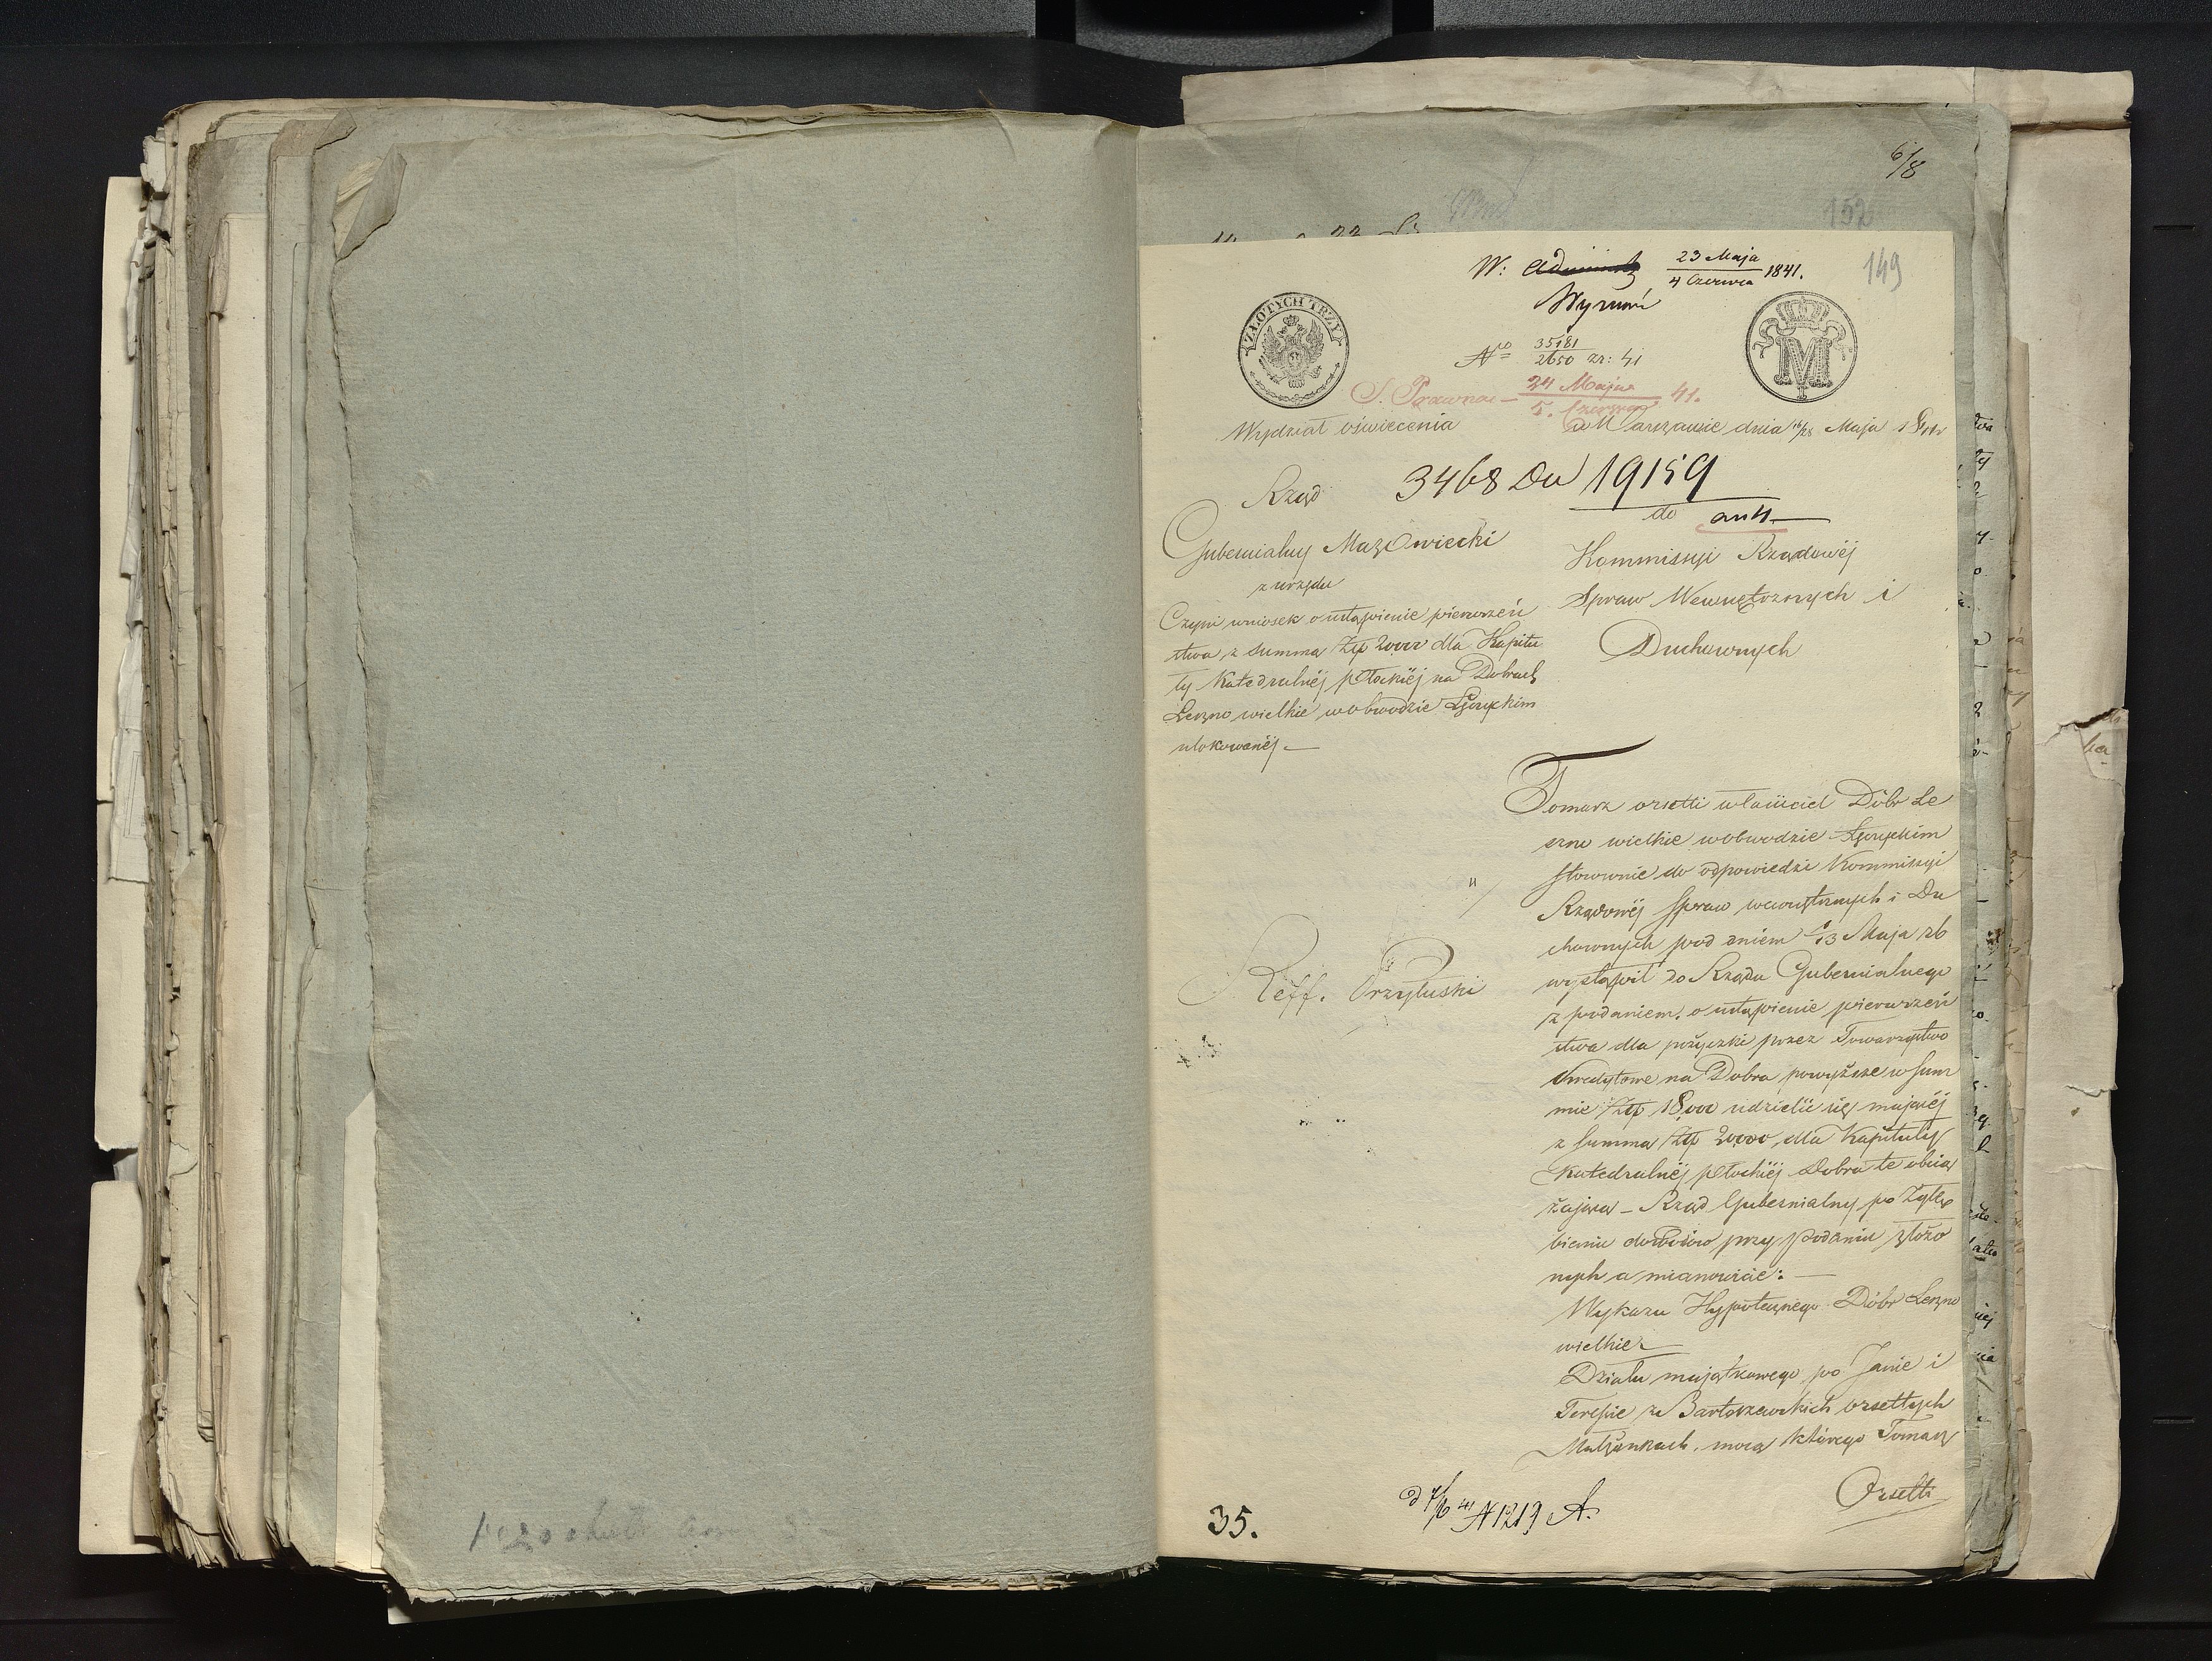 6/8
152
149
W: Administ 23 Maja / 4 Czerwca 1841.
Wyzna
ZŁOTYCH TRZY
M
Nro 35181 / 2650 zr: 41
S. Prawna – 24 Maja / 5. Czerwca 41.
Wydział oświecenia
w Warszawie dnia 16/28 Maja 1841
Rząd
3468 Du 19159
Gubernialny Mazowiecki
z urzędu
Czyni wniosek o ustąpienie pierwszeń
stwa z summą Złp 20000 dla Kapitu
ły Katedralnéj płockiéj na Dobrach
Leszno wielkie w obwodzie Łęczyckim
ulokowanéj –
do
Kommissyi Rządowéj
Spraw Wewnętrznych i
Duchownych
Tomasz orsetti właściciel Dóbr Le
szno wielkie w obwodzie Łęczyckim
stosownie do odpowiedzi Kommissyi
Rządowéj Spraw wewnętrznych i Du
chownych pod dniem 1/13 Maja rb
wystąpił do Rządu Gubernialnego
z podaniem o ustąpienie pierwszeń
stwa dla pożyczki przez Towarzystwo
Kredytowe na Dobra powyższe w Sum
mie Złp 18,000 udzielić się mającéj
z summą Złp 20000, dla Kapituły
Katedralnéj płockiéj Dobra te obcią
żającą – Rząd Gubernialny po zgłę
bieniu dowodów przy podaniu złożo
nych a mianowicie: –
Wykazu Hypotecznego Dóbr Leszno
wielkie
Działu majątkowego po Janie i
Teressie z Bartoszewskich orsettych
Małżonkach, mocą którego Tomasz
Orsetti
Reff. Przyłuski
35.
d 7/6 41 N 1219 A.